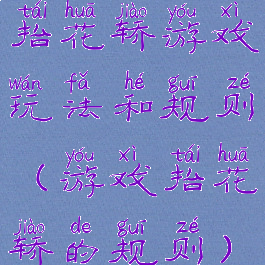 tái huā jiào yóu xì
抬花轿游戏
wán fǎ hé guī zé
玩法和规则
yóu xì tái huā
（游戏抬花
jiào de guī zé
轿的规则）